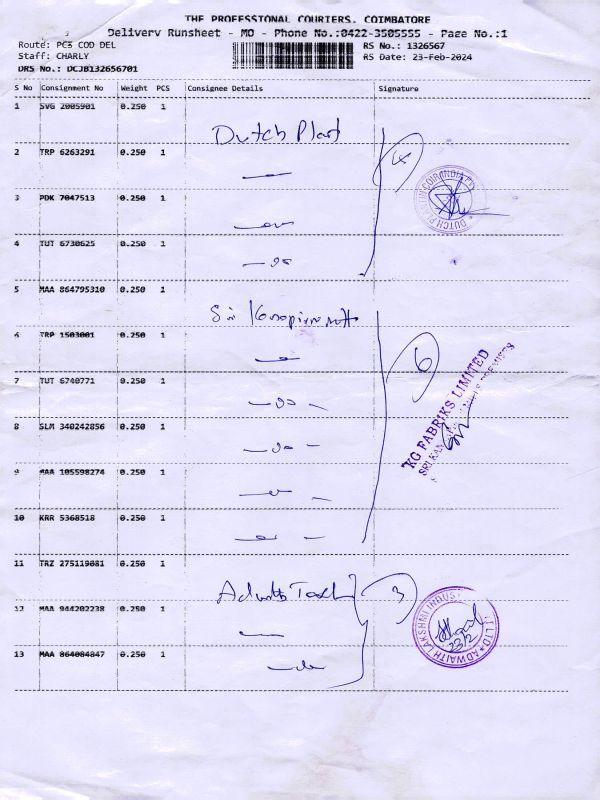 THE PROFESSIONAL COURIERS, COIMBATORE
Delivery Runsheet - MO - Phone No.:0422-3505555 - Page No.:1
Route: PC3 COD DEL
RS No.: 1326567
Staff: CHARLY
RS Date: 23-Feb-2024
DRS No.: DCJB132656701
S No Consignment No Weight PCS Consignee Details Signature
1 SVG 2005901 0.250 1
Dutch Plant
2 TRP 6263291 0.250 1
4
3 PDK 7047513 0.250 1
4 TUT 6730625 0.250 1
5 MAA 864795310 0.250 1
Sri
6 TRP 1503001 0.250 1
6
KG FABRIKS LIMITED
7 TUT 6740771 0.250 1
8 SLM 340242856 0.250 1
9 MAA 105598274 0.250 1
10 KRR 5368518 0.250 1
11 TRZ 275119081 0.250 1
3
12 MAA 944202238 0.250 1
ADWAITH LAKSHMI
23/2
13 MAA 864084847 0.250 1